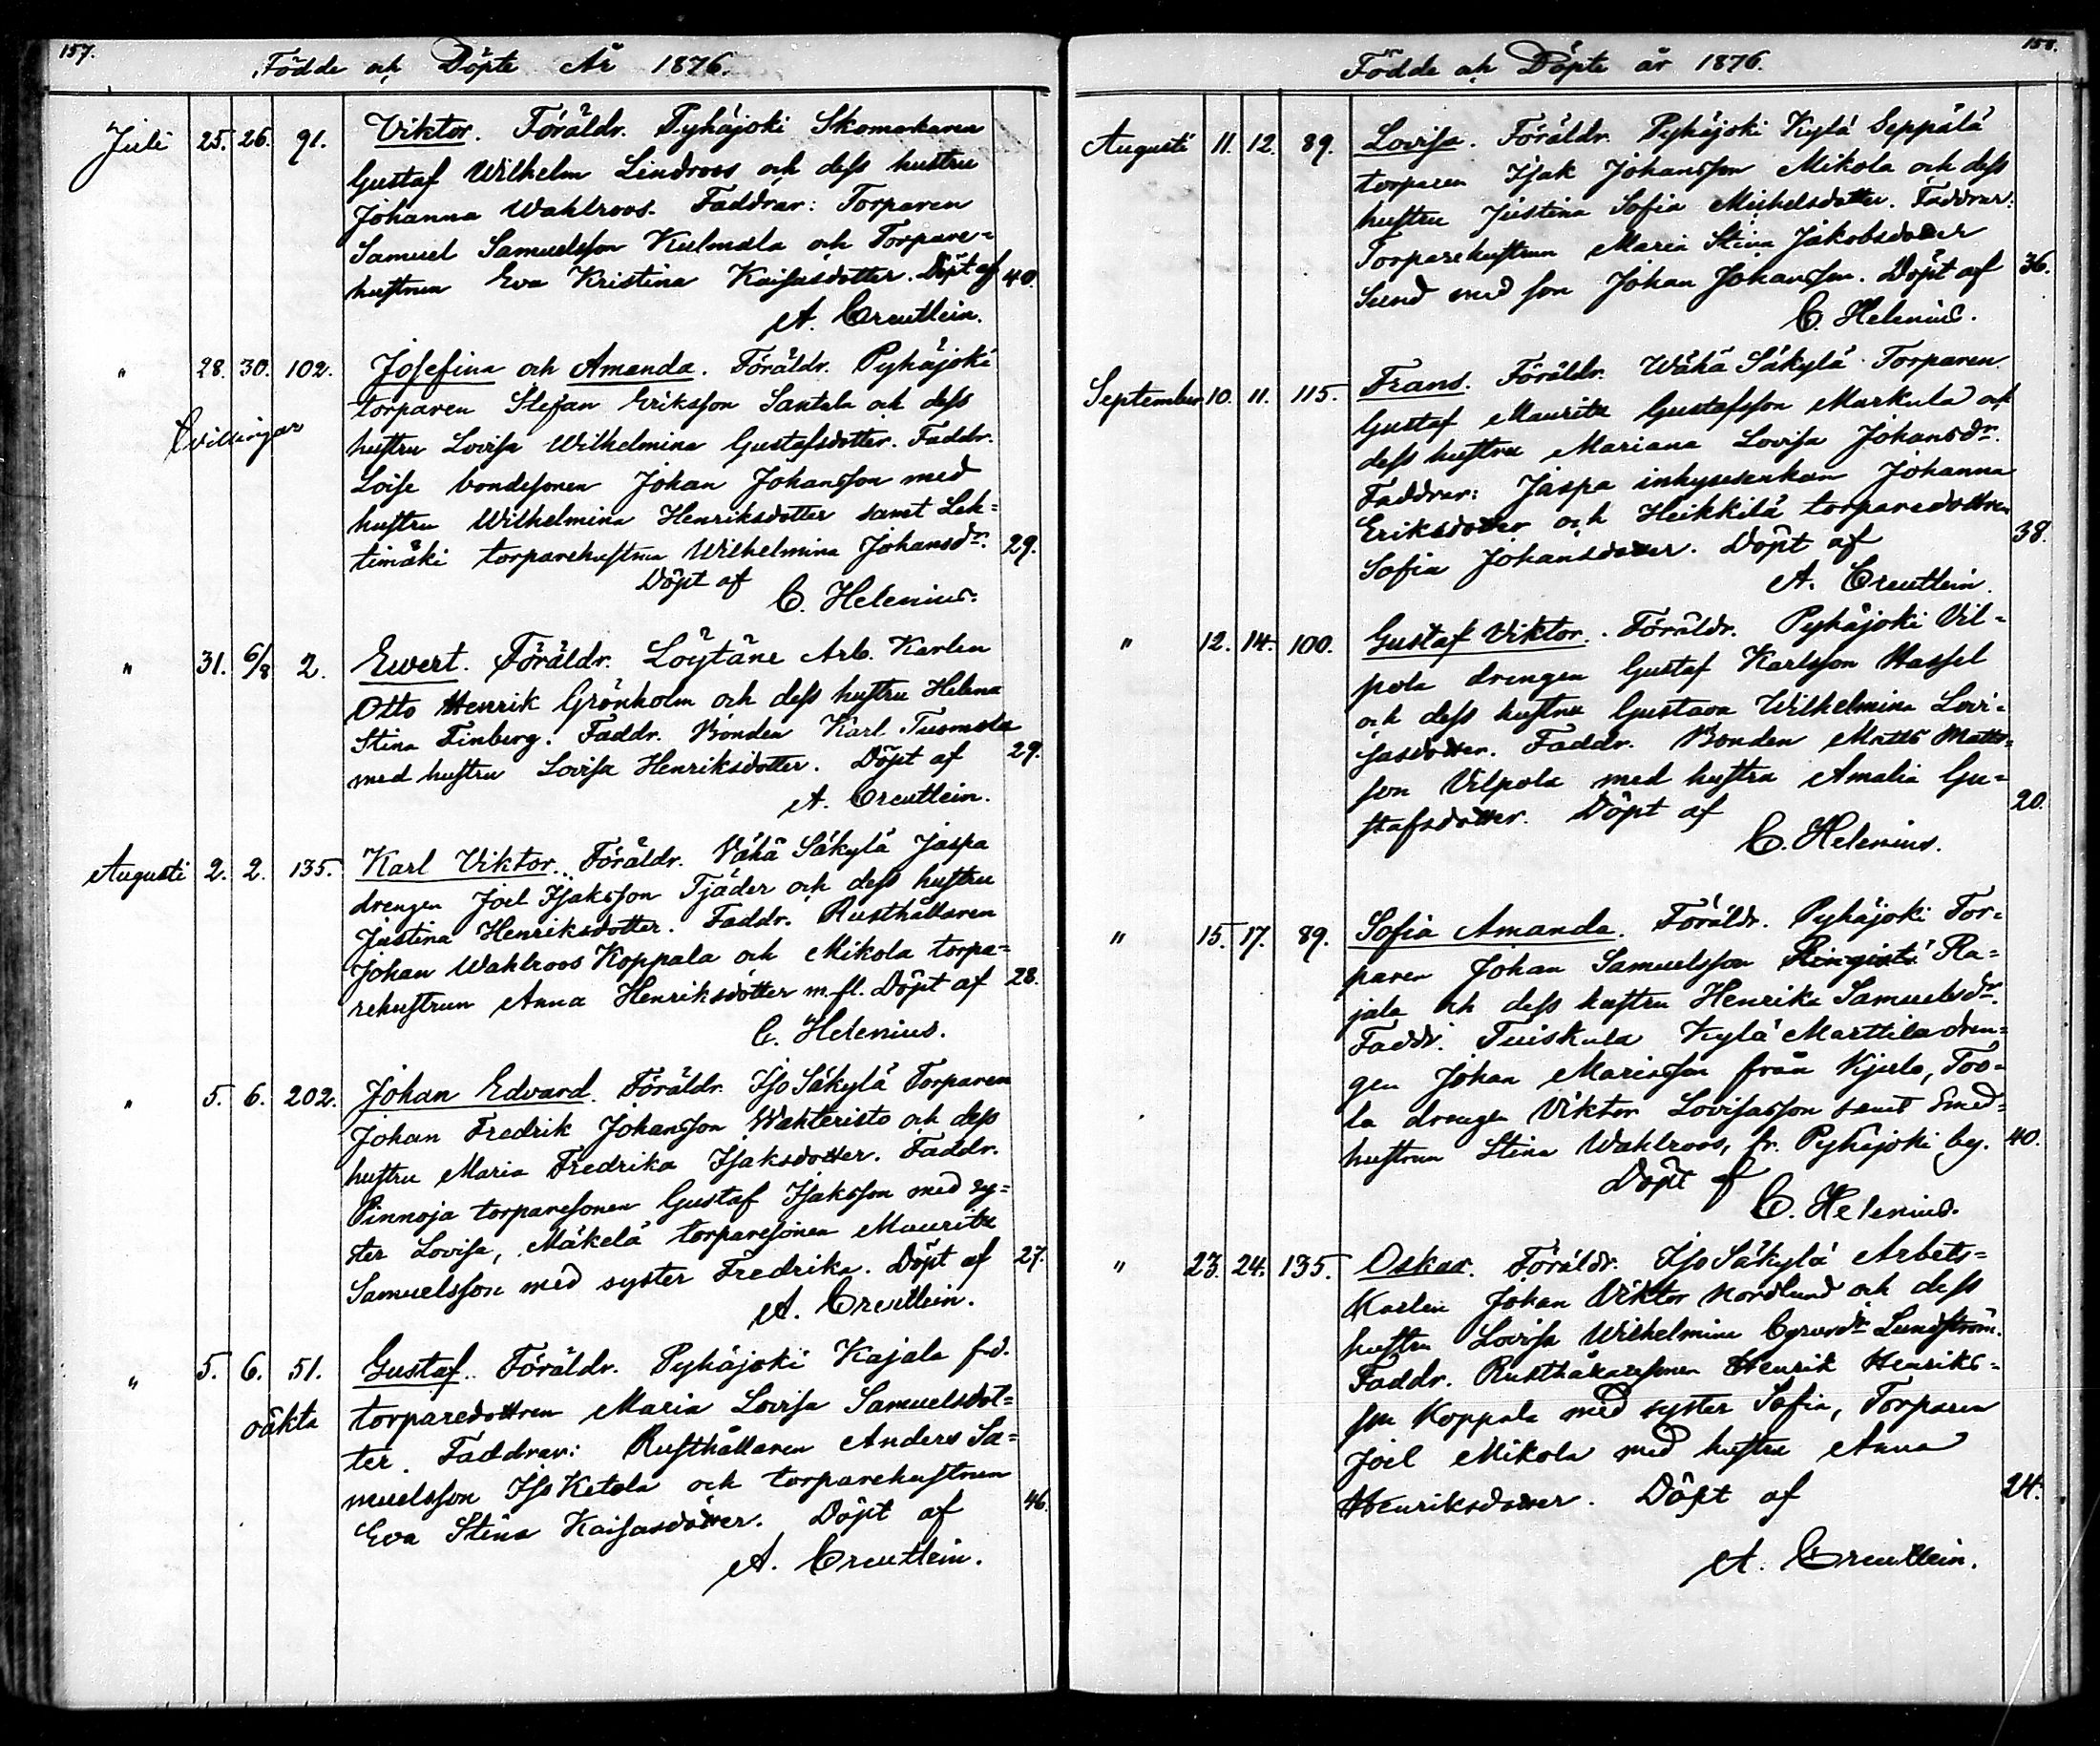 157.
Födde och Döpte År 1876.
Juli 25. 26. 91. Viktor. Föräldr. Pyhäjoki Skomakaren
Gustaf Wilhelm Lindroos och dess hustru
Johanna Wahlroos. Faddrar: Torparen
Samuel Samuelsson Kulmala och Torpare=
hustrun Eva Kristina Kaisasdotter. Döpt af 40.
A. Creutlein.
" 28. 30. 102. Josefina och Amanda. Föräldr. Pyhäjoki
torparen Stefan Eriksson Santala och dess
Tvillingar
hustru Lovisa Wilhelmina Gustafsdotter. Faddr.
bondesonen Johan Johansson med
hustru Wilhelmina Henriksdotter samt Leh=
timäki torparehustrun Wilhelmina Johansdr. 29.
Döpt af
C. Helenius.
" 31. 6/8 2. Ewert. Föräldr. Löytäne Arb. Karlen
Otto Henrik Grönholm och dess hustru Helena
Stina Finberg. Faddr. Bonden Karl Tuomola
med hustru Lovisa Henriksdotter. Döpt af 29.
A. Creutlein.
Augusti 2. 2. 135. Karl Viktor. Föräldr. Vähä Säkylä Jaspa
drengen Joel Isaksson Tjäder och dess hustru
Justina Henriksdotter. Faddr. Rusthållaren
Johan Wahlroos Koppala och Mikola torpa=
rehustrun Anna Henriksdotter m.fl. Döpt af 28.
C. Helenius.
" 5. 6. 202. Johan Edvard. Föräldr. Iso Säkylä Torparen
Johan Fredrik Johansson Wahteristo och dess
hustru Maria Fredrika Isaksdotter. Faddr.
Pinnoja torparesonen Gustaf Isaksson med sy=
ster Lovisa, Mäkelä torparesonen Mauritz
Samuelsson med syster Fredrika. Döpt af 27.
A. Creutlein.
" 5. 6. 51. Gustaf. Föräldr. Pyhäjoki Kajala f.d.
oäkta torparedottren Maria Lovisa Samuelsdot=
ter. Faddrar: Rusthållaren Anders Sa=
muelsson Iso Ketola och torparehustrun
Eva Stina Kaisasdotter. Döpt af 46.
A. Creutlein.
158.
Födde och Döpte år 1876.
Augusti 11. 12. 89. Lovisa. Föräldr. Pyhäjoki Kylä Seppälä
torparen Isak Johansson Mikola och dess
hustru Justina Sofia Michelsdotter. Faddrar:
Torparehustrun Maria Stina Jakobsdotter
Sund med son Johan Johansson. Döpt af 36.
C. Helenius.
September 10. 11. 115. Frans. Föräldr. Wähä Säkylä Torparen
Gustaf Mauritz Gustafsson Markula och
dess hustru Mariana Lovisa Johansdr.
Faddrar: Jaspa inhysesenkan Johanna
Eriksdotter och Heikkilä torparedottren
Sofia Johansdotter. Döpt af 38.
A. Creutlein.
" 12. 14. 100. Gustaf Viktor. Föräldr. Pyhäjoki Vil=
pola drengen Gustaf Karlsson Hassel
och dess hustru Gustava Wilhelmina Lovi=
sasdotter. Faddr. Bonden Matts Matts=
son Vilpola med hustru Amalia Gu=
stafsdotter. Döpt af 20.
C. Helenius.
" 15. 17. 89. Sofia Amanda. Föräldr. Pyhäjoki Tor=
paren Johan Samuelsson Ra=
jala och dess hustru Henrika Samuelsdr.
Faddr. Tuiskula Kylä Marttila dren=
gen Johan Mariasson från Kjulo, Too=
la drengen Viktor Lovisasson samt Smed=
hustrun Stina Wahlroos, fr. Pyhäjoki by. 40.
Döpt af
C. Helenius.
" 23. 24. 135. Oskar. Föräldr. Iso Säkylä Arbets=
Karlen Johan Viktor Nordlund och dess
hustru Lovisa Wilhelmina Lundström.
Faddr. Rusthållaresonen Henrik Henriks=
son Koppala med syster Sofia, Torparen
Joel Mikola med hustru Anna
Henriksdotter. Döpt af 24.
A. Creutlein.